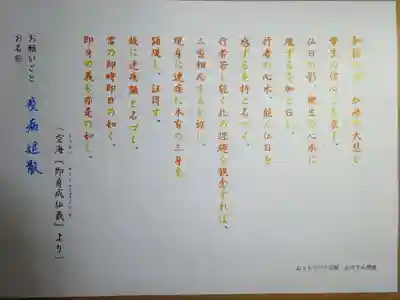 加持とは、如来の大悲と
衆生の信心とを表す。
仏日の影、衆生の心水に
現ずるを加と曰い、
行者の心水、能く仏日を
感ずるを持と名づく。
行者若し能く此の理趣を観念すれば、
三密相応するが故に、
現身に速疾に本有の三身を
顕現し、証得す。
故に速疾顕と名づく。
常の即時即日の如く、
即身の義も亦是の如し。
(空海『即身成仏義』より)
お願いごと 疫病退散
お名前